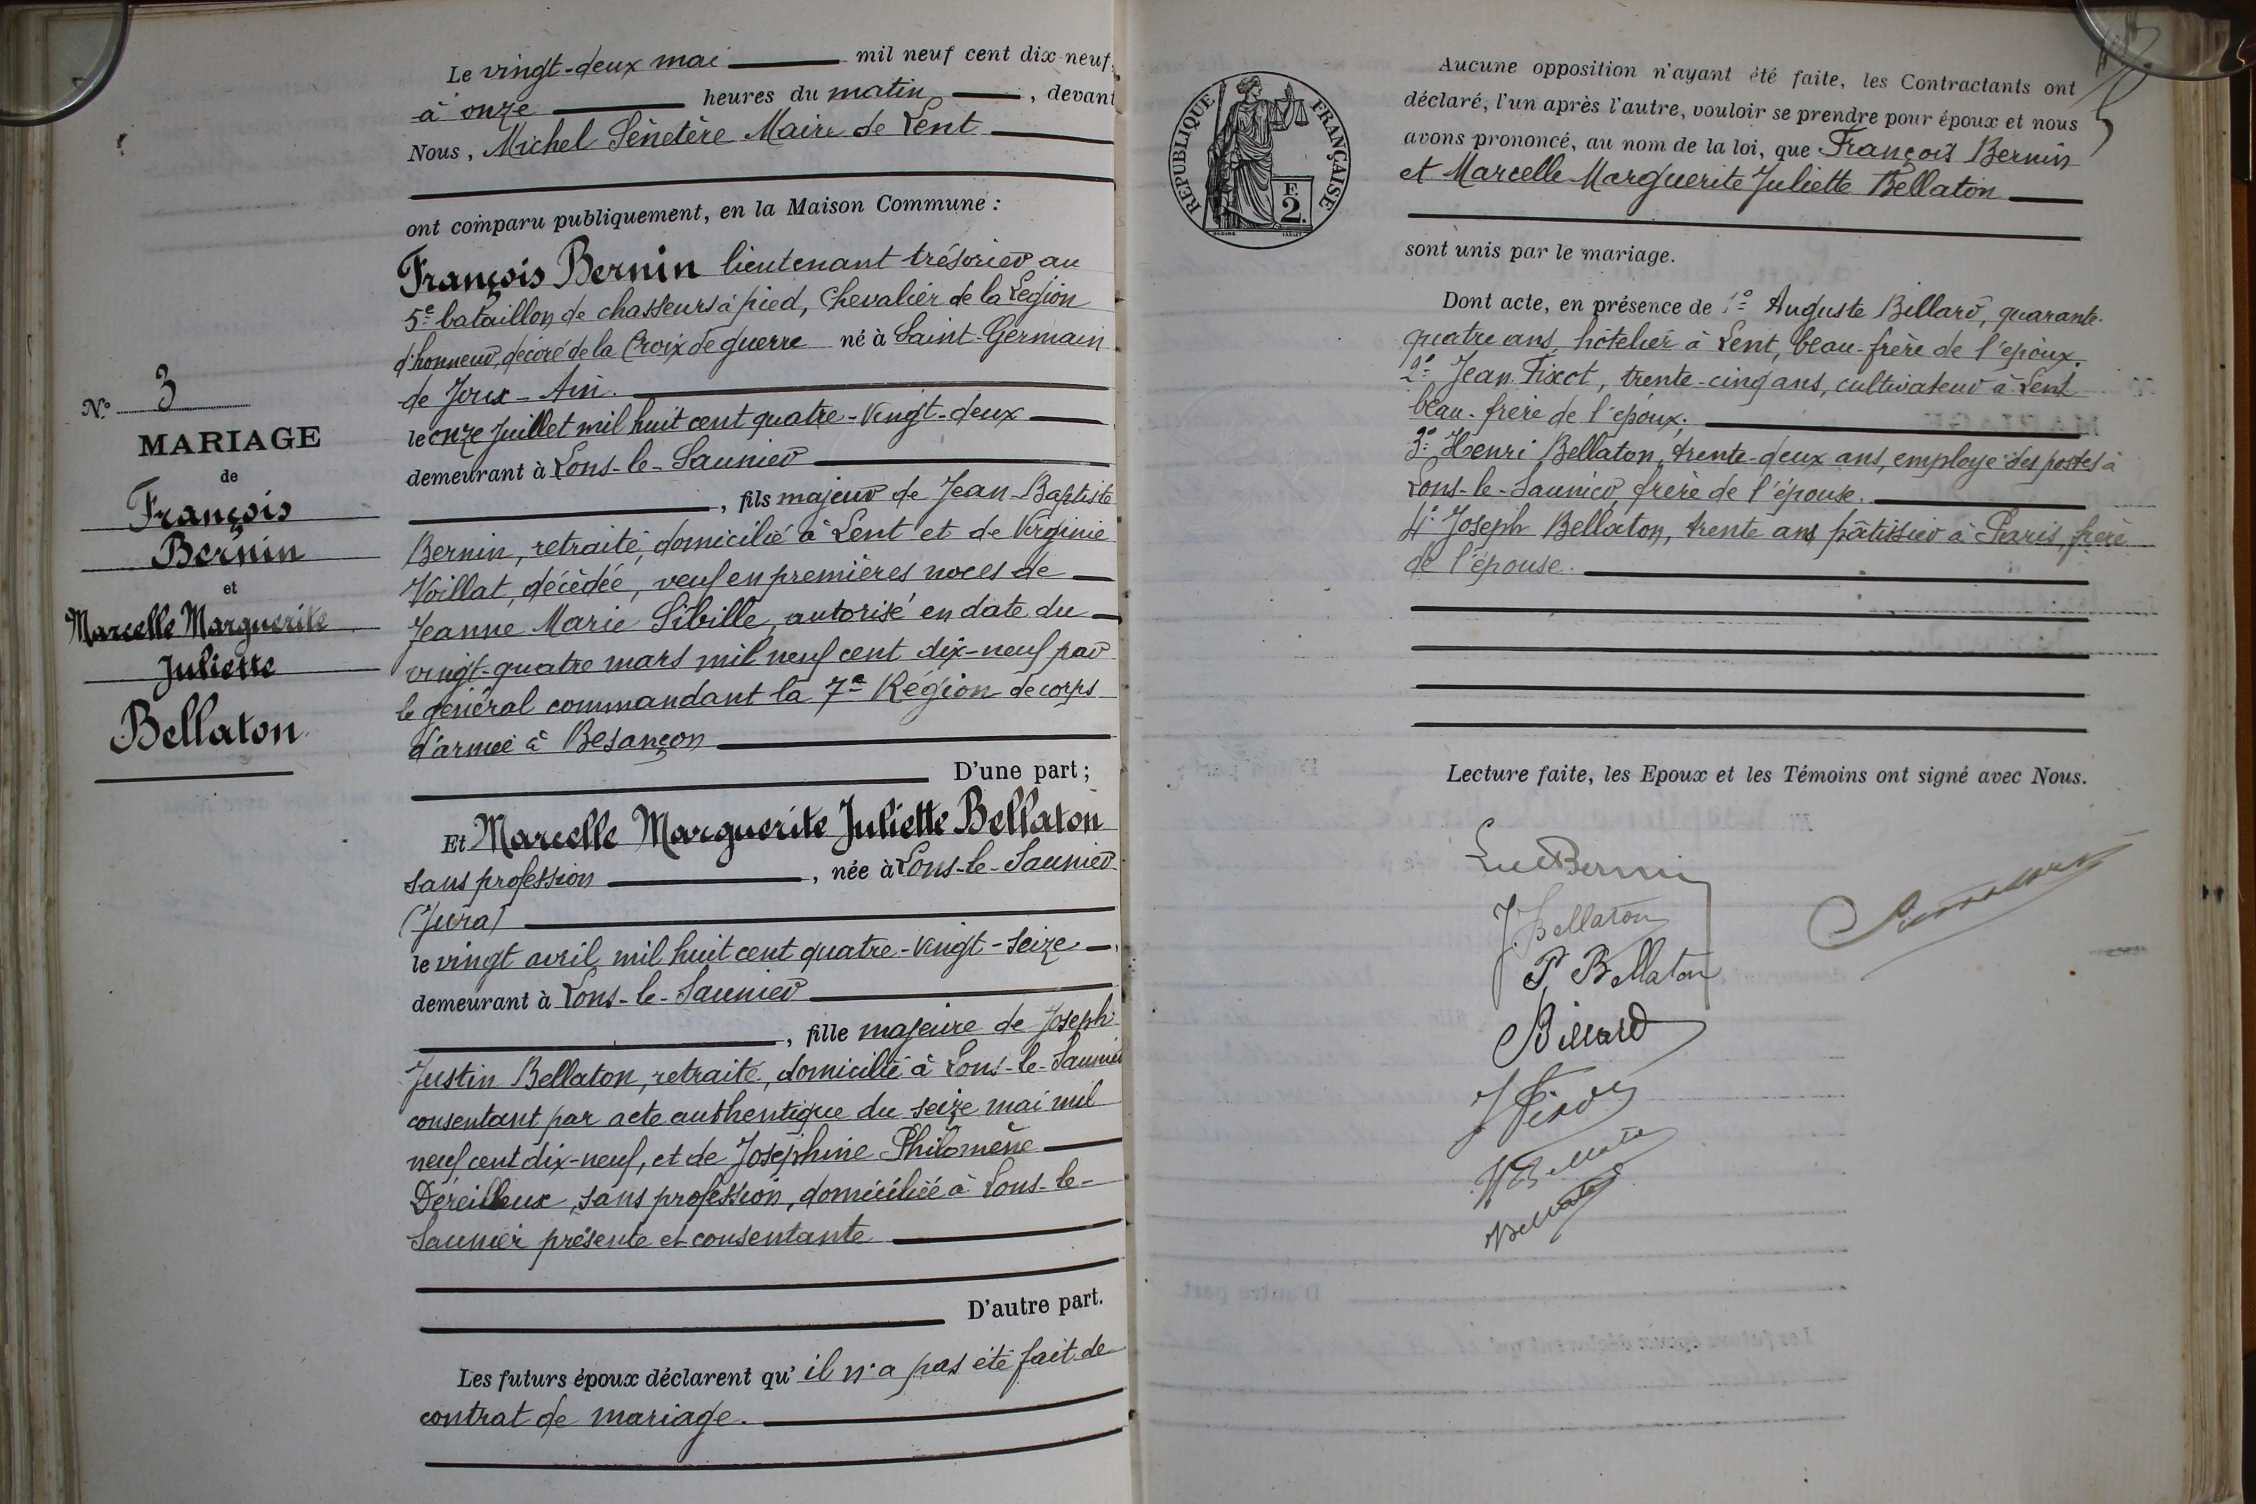 N.º 3
MARIAGE
de
François
Bernin
et
Marcelle Marguerite
Juliette
Bellaton
Le vingt-deux mai mil neuf cent dix-neuf,
à onze heures du matin, devant
Nous, Michel Sénetère Maire de Lent
ont comparu publiquement, en la Maison Commune :
François Bernin lieutenant trésorier au
5e bataillon de chasseurs à pied, Chevalier de la Légion
d'honneur, décoré de la Croix de guerre né à Saint-Germain
de Joux - Ain.
le onze Juillet mil huit cent quatre-Vingt-deux
demeurant à Lons-le-Saunier
, fils majeur de Jean-Baptiste
Bernin, retraité, domicilié à Lent et de Virginie
Voillat, décédée, veuf en premières noces de
Jeanne Marie Sibille, autorisé en date du
vingt-quatre mars mil neuf cent dix-neuf par
le général commandant la 7e Région de corps
d'armée à Besançon
D'une part ;
Et Marcelle Marguerite Juliette Bellaton
sans profession, née à Lons-le-Saunier
(Jura)
le vingt avril mil huit cent quatre-vingt-seize
demeurant à Lons-le-Saunier
, fille majeure de Joseph
Justin Bellaton, retraité, domicilié à Lons-le-Saunier
consentant par acte authentique du seize mai mil
neuf cent dix-neuf, et de Joséphine Philomène
Déreilleux, sans profession, domiciliée à Lons-le-
Saunier présente et consentante
D'autre part.
Les futurs époux déclarent qu'il n'a pas été fait de
contrat de mariage.
RÉPUBLIQUE FRANÇAISE
F.
2.
Aucune opposition n'ayant été faite, les Contractants ont
déclaré, l'un après l'autre, vouloir se prendre pour époux et nous
avons prononcé, au nom de la loi, que François Bernin
et Marcelle Marguerite Juliette Bellaton
sont unis par le mariage.
Dont acte, en présence de 1º Auguste Billard, quarante-
quatre ans, hôtelier à Lent, beau-frère de l'époux.
2º Jean Fixot, trente-cinq ans, cultivateur à Lent
beau-frère de l'époux;
3º Henri Bellaton, trente-deux ans, employé des postes à
Lons-le-Saunier, frère de l'épouse.
4º Joseph Bellaton, trente ans pâtissier à Paris, frère
de l'épouse.
Lecture faite, les Epoux et les Témoins ont signé avec Nous.
Bernin
J. Bellaton
P. Bellaton
Billard
H Bellaton
Bellaton